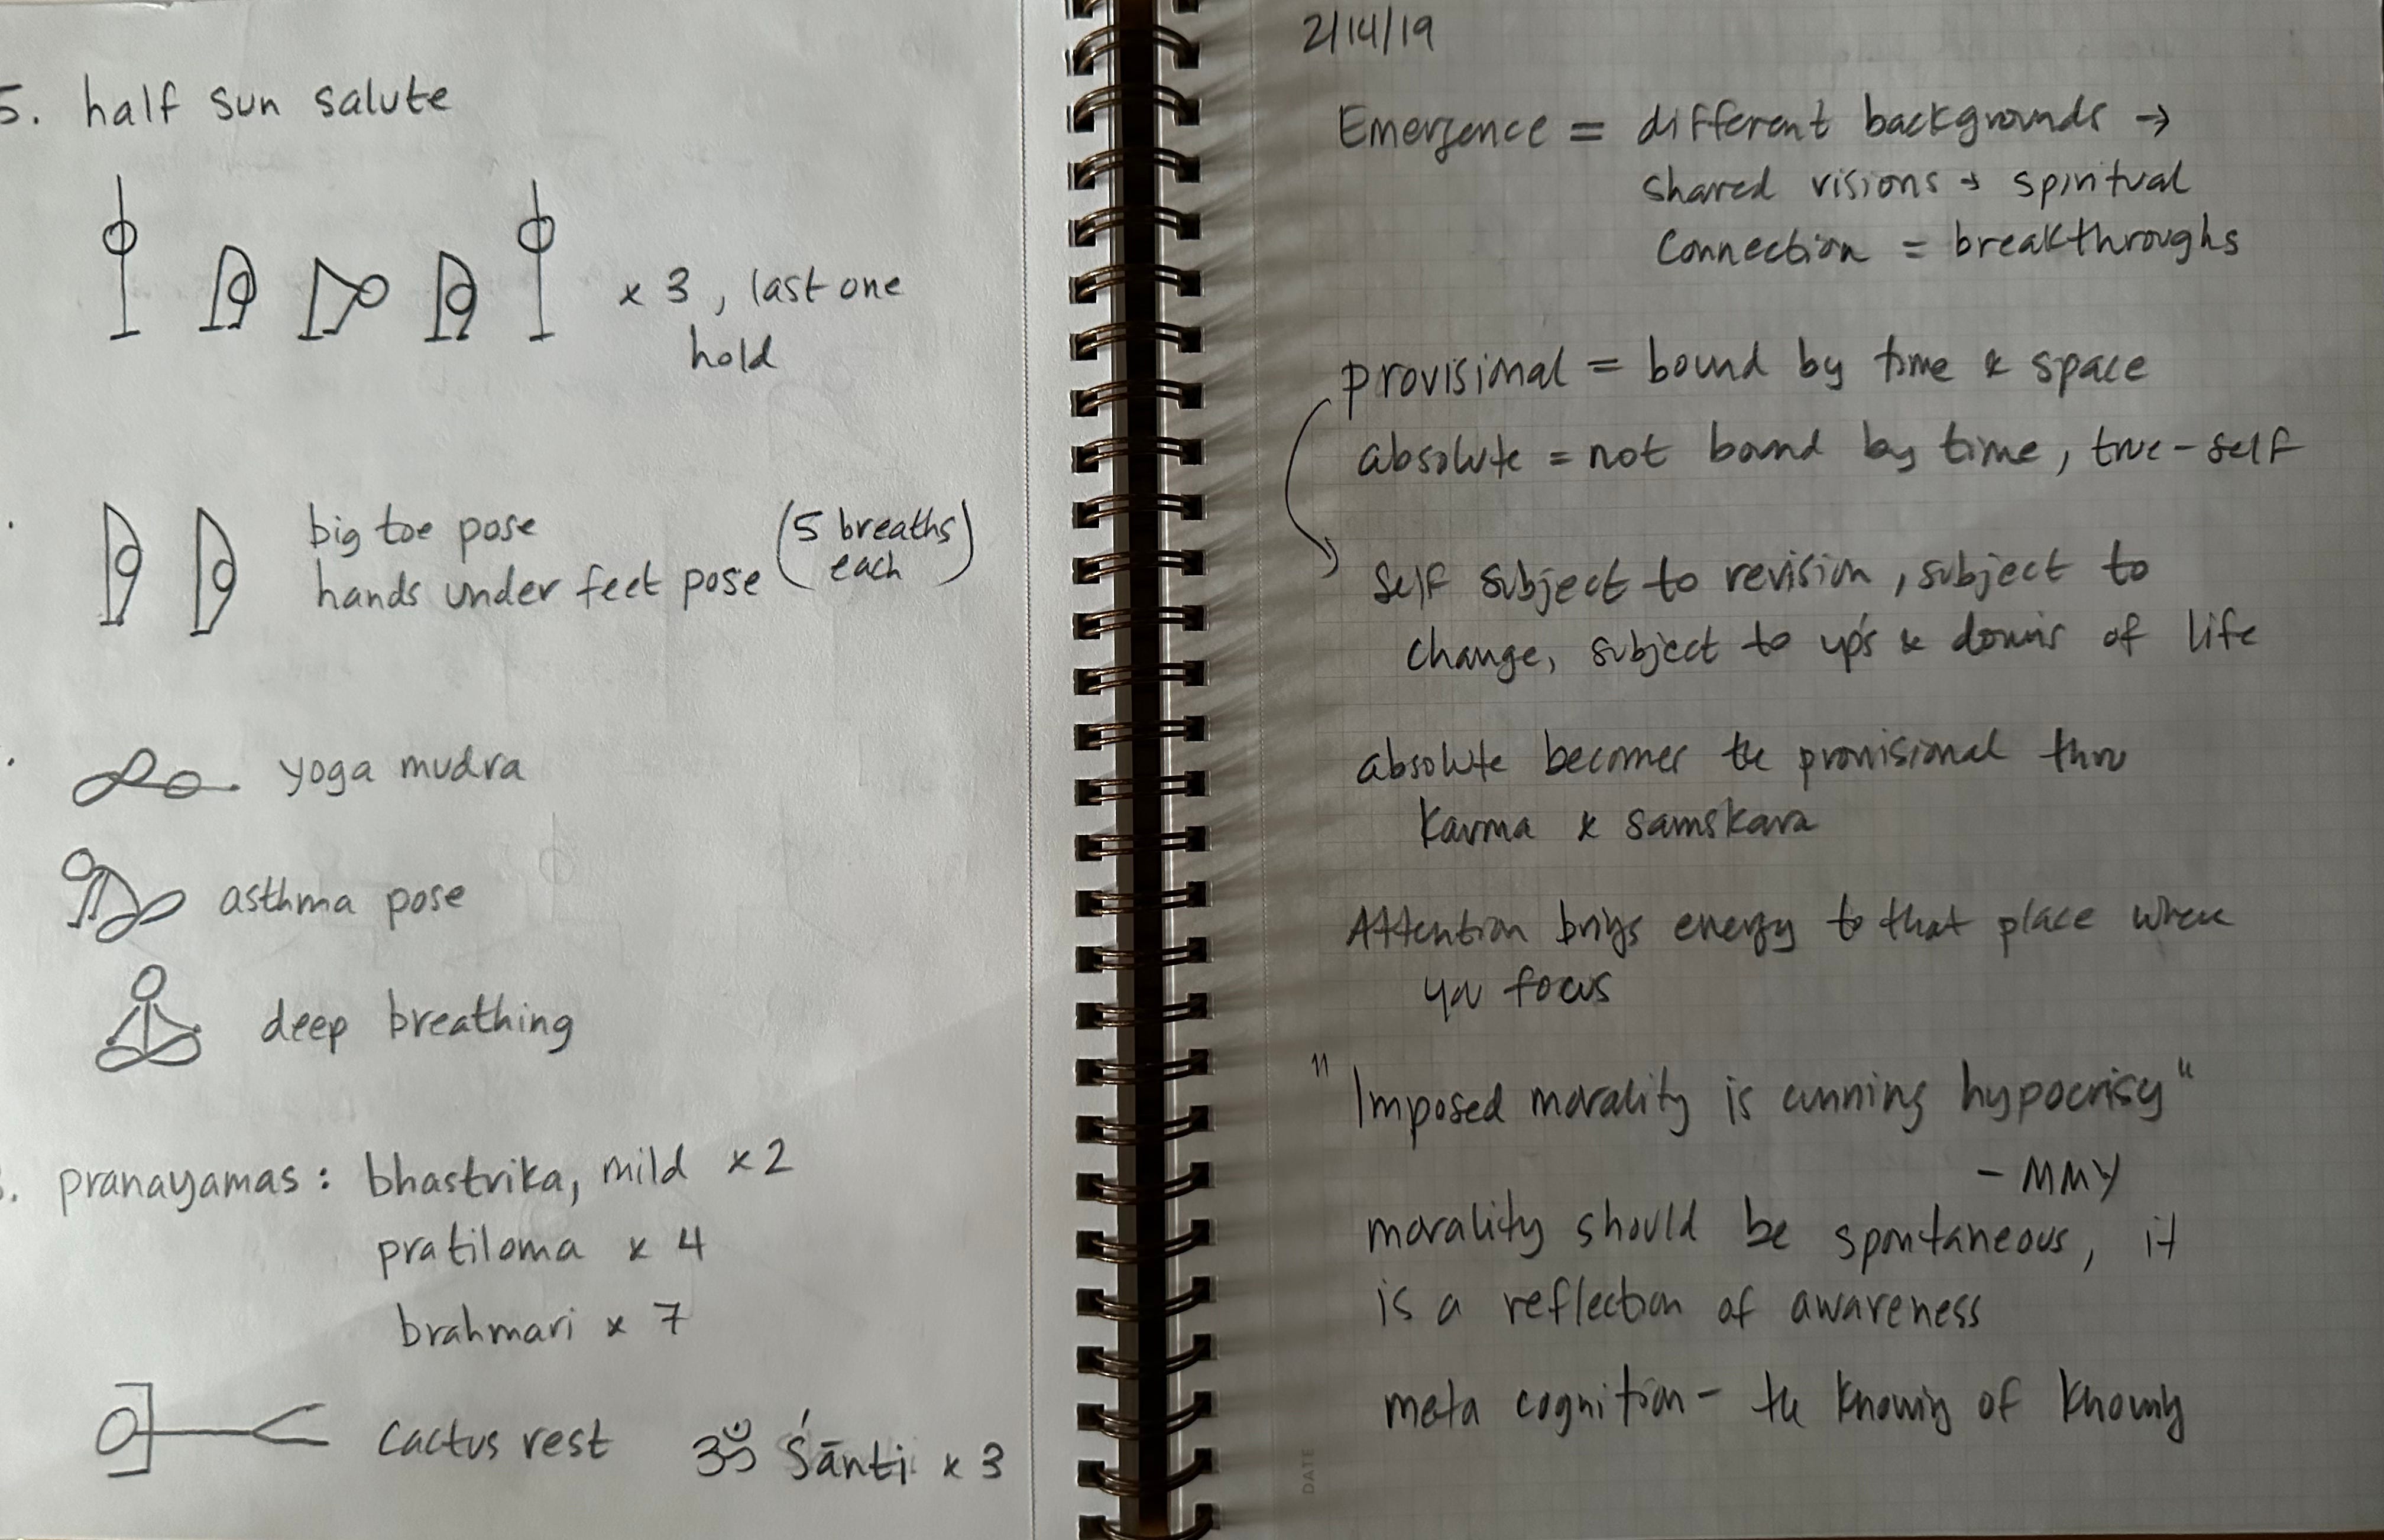 5. half sun salute
x 3, last one
hold
big toe pose (5 breaths
hands under feet pose each)
yoga mudra
asthma pose
deep breathing
. pranayamas: bhastrika, mild x2
pratiloma x 4
brahmari x 7
cactus rest ॐ Śānti x 3
2/14/19
Emergence = different backgrounds →
shared visions → spiritual
connection = breakthroughs
provisional = bound by time & space
absolute = not bound by time, true-self
self subject to revision, subject to
change, subject to up's & down's of life
absolute becomes the provisional thru
karma & samskara
Attention brings energy to that place where
you focus
"Imposed morality is cunning hypocrisy"
- MMY
morality should be spontaneous, it
is a reflection of awareness
meta cognition - the knowing of knowing
DATE